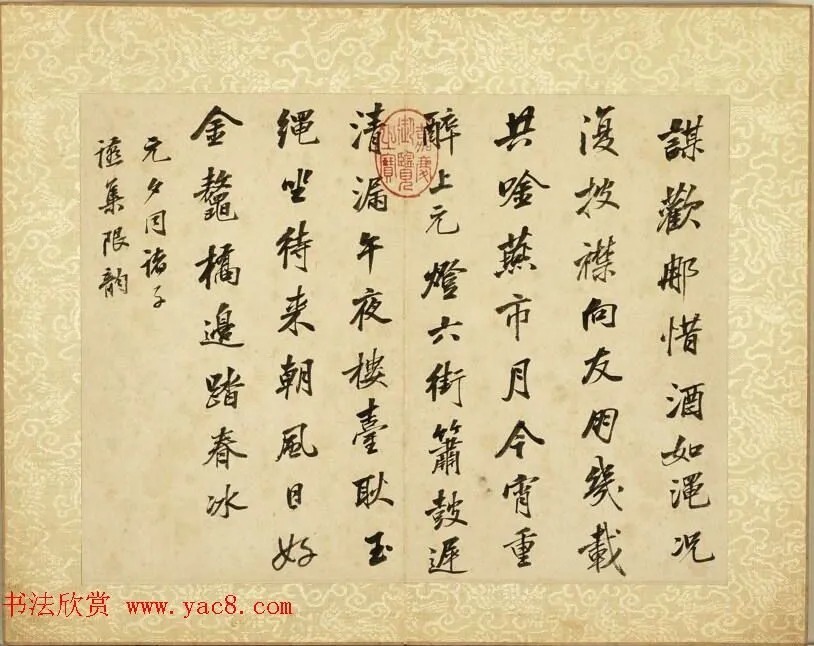 謀歡那惜酒如澠况
復披襟向友朋幾載
共唫燕市月今宵重
醉上元燈六街簫鼓遲
清漏午夜樓臺耿玉
繩坐待来朝風日好
金鼇橋邊踏春冰
元夕同諸子
讌集限韵
嘉慶御覽之寶
书法欣赏 www.yac8.com